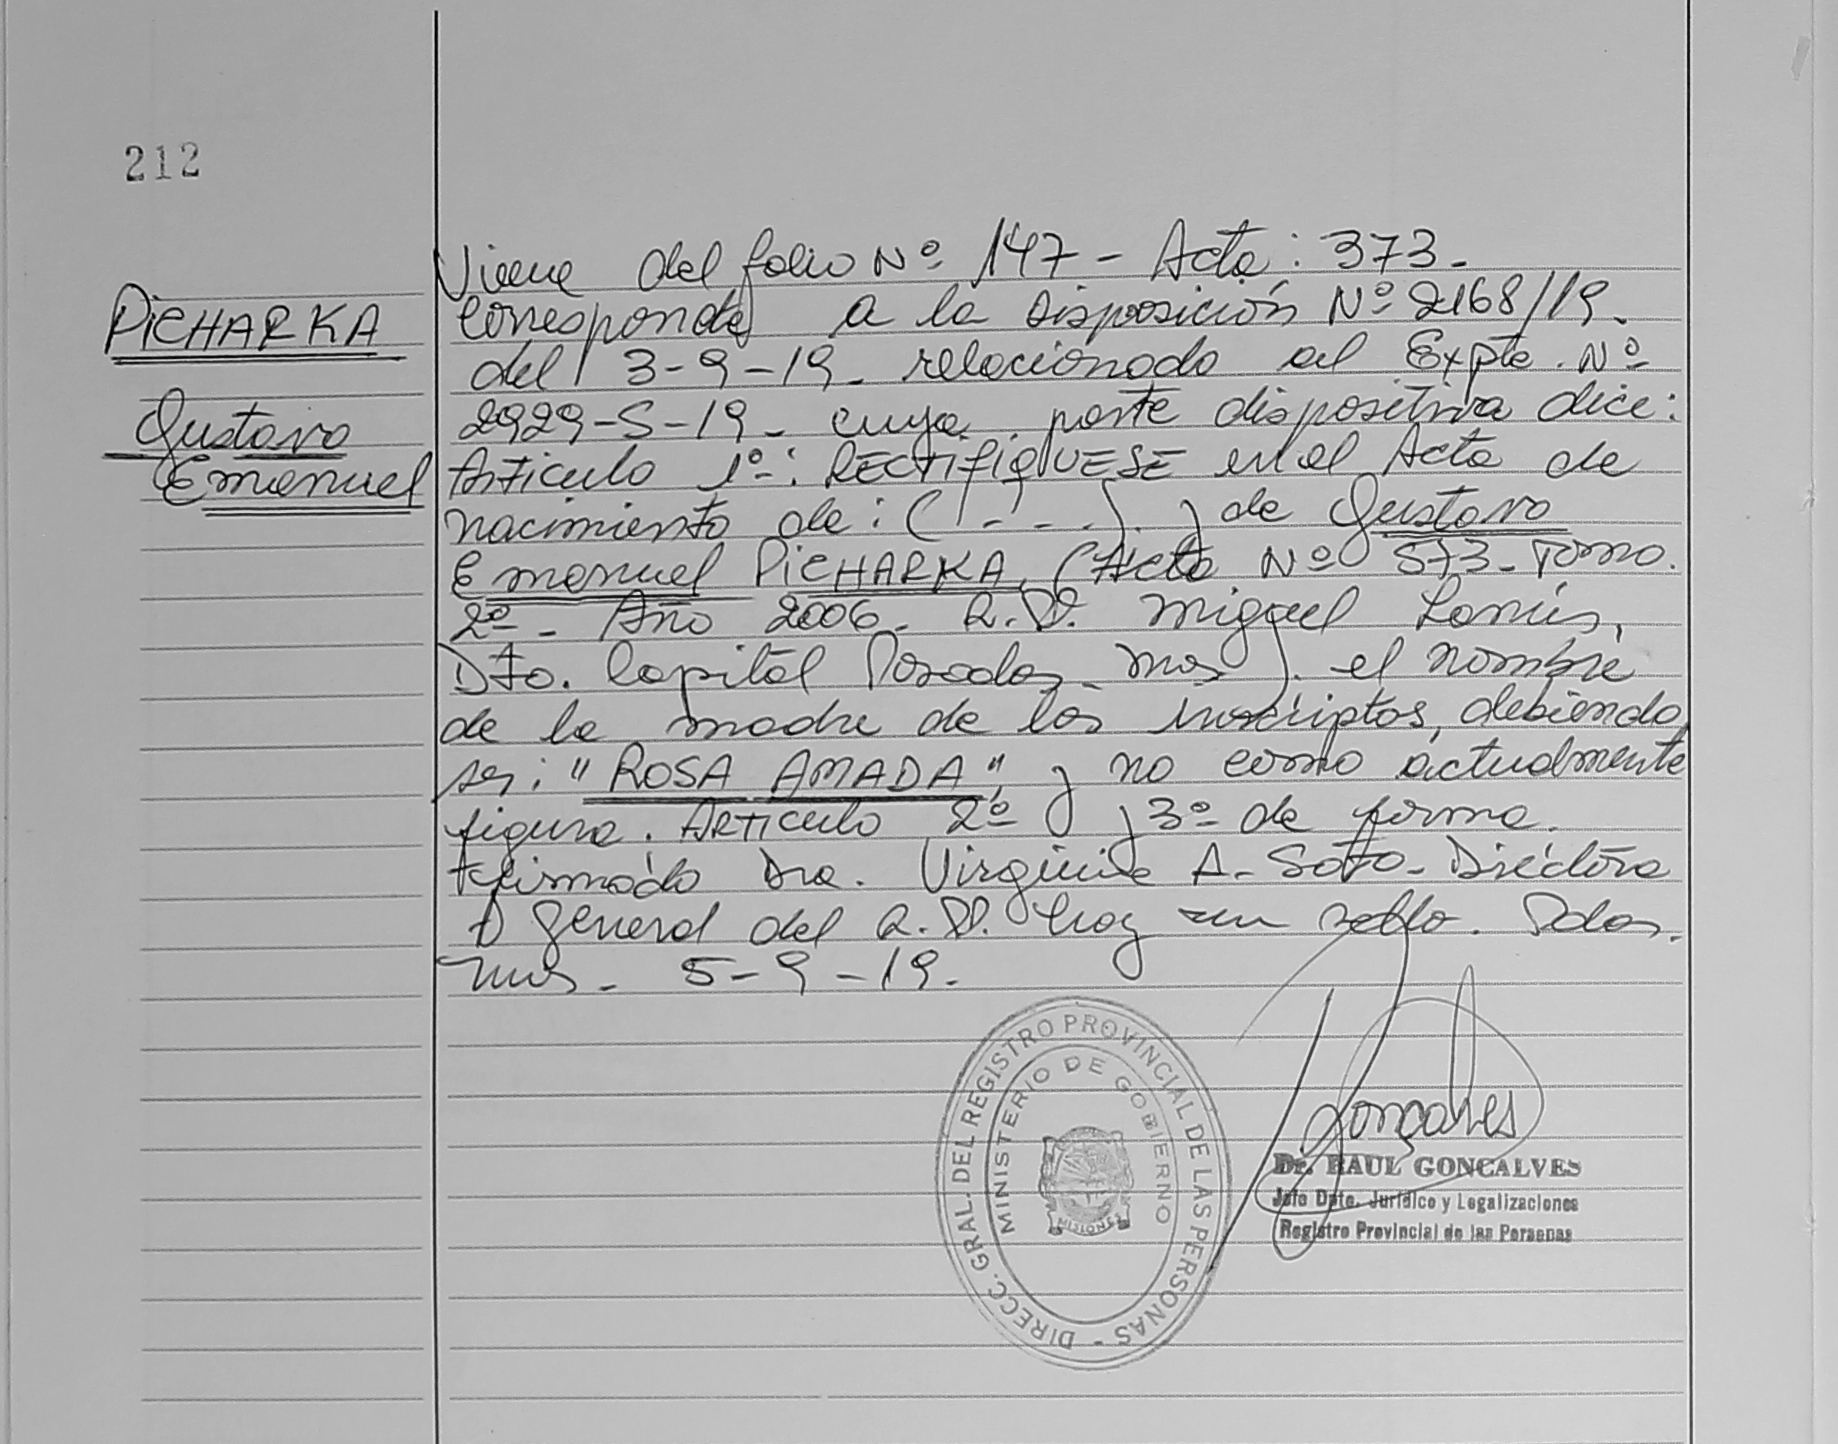 212
Viene del folio Nº 147 - Acta: 373.
PICHARKA
corresponde a la Disposición Nº 2168/19.
del 3-9-19. relacionado al Expte. Nº
Gustavo
2929-S-19. cuya parte dispositiva dice:
Emanuel
Articulo 1º: RECTIFIQUESE en el Acta de
nacimiento de: (- - - -) y de Gustavo
Emanuel PICHARKA, (Acta Nº 573. Tomo.
2º - Año 2006. R.P. Miguel Lanús,
Dto. Capital Posadas. Mns). el nombre
de la madre de los inscriptos, debiendo
ser: "ROSA AMADA", y no como actualmente
figura. ARTICULO 2º y 3º de forma.
Firmado Dra. Virginia A. Soto - Directora
General del R.P. hay un sello. Pdas.
Mns. 5-9-19.
DIRECC. GRAL. DEL REGISTRO PROVINCIAL DE LAS PERSONAS -
MINISTERIO DE GOBIERNO
MISIONES
Gonçalves
Dr. RAUL GONCALVES
Jefe Dpto. Jurídico y Legalizaciones
Registro Provincial de las Personas